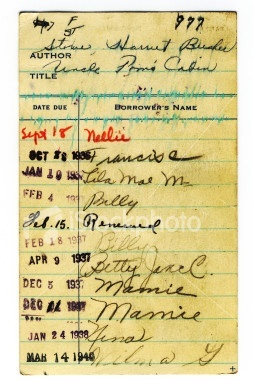 F 977
St
Stowe, Harriet Beecher
AUTHOR
Uncle Tom's Cabin
TITLE
DATE DUE BORROWER'S NAME
Sept 18 Nellie
OCT 28 1935 Francis C
JAN 10 Lila Mae M.
FEB 4 Billy
Feb. 15. Renewed
FEB 18 1937 Billy
APR 9 1937 Betty Jane C.
DEC 5 1937 Mamie
DEC 1937 Mamie
JAN 24 1938 Tina
MAR 14 1940 Wilma G